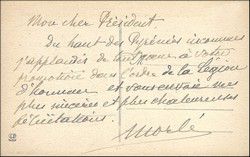 Mon cher Président
du haut des Pyrénées
j'applaudis de tout cœur à votre
promotion dans l'ordre de la Légion
d'honneur et vous envoie mes
plus sincères et plus chaleureuses
félicitations.